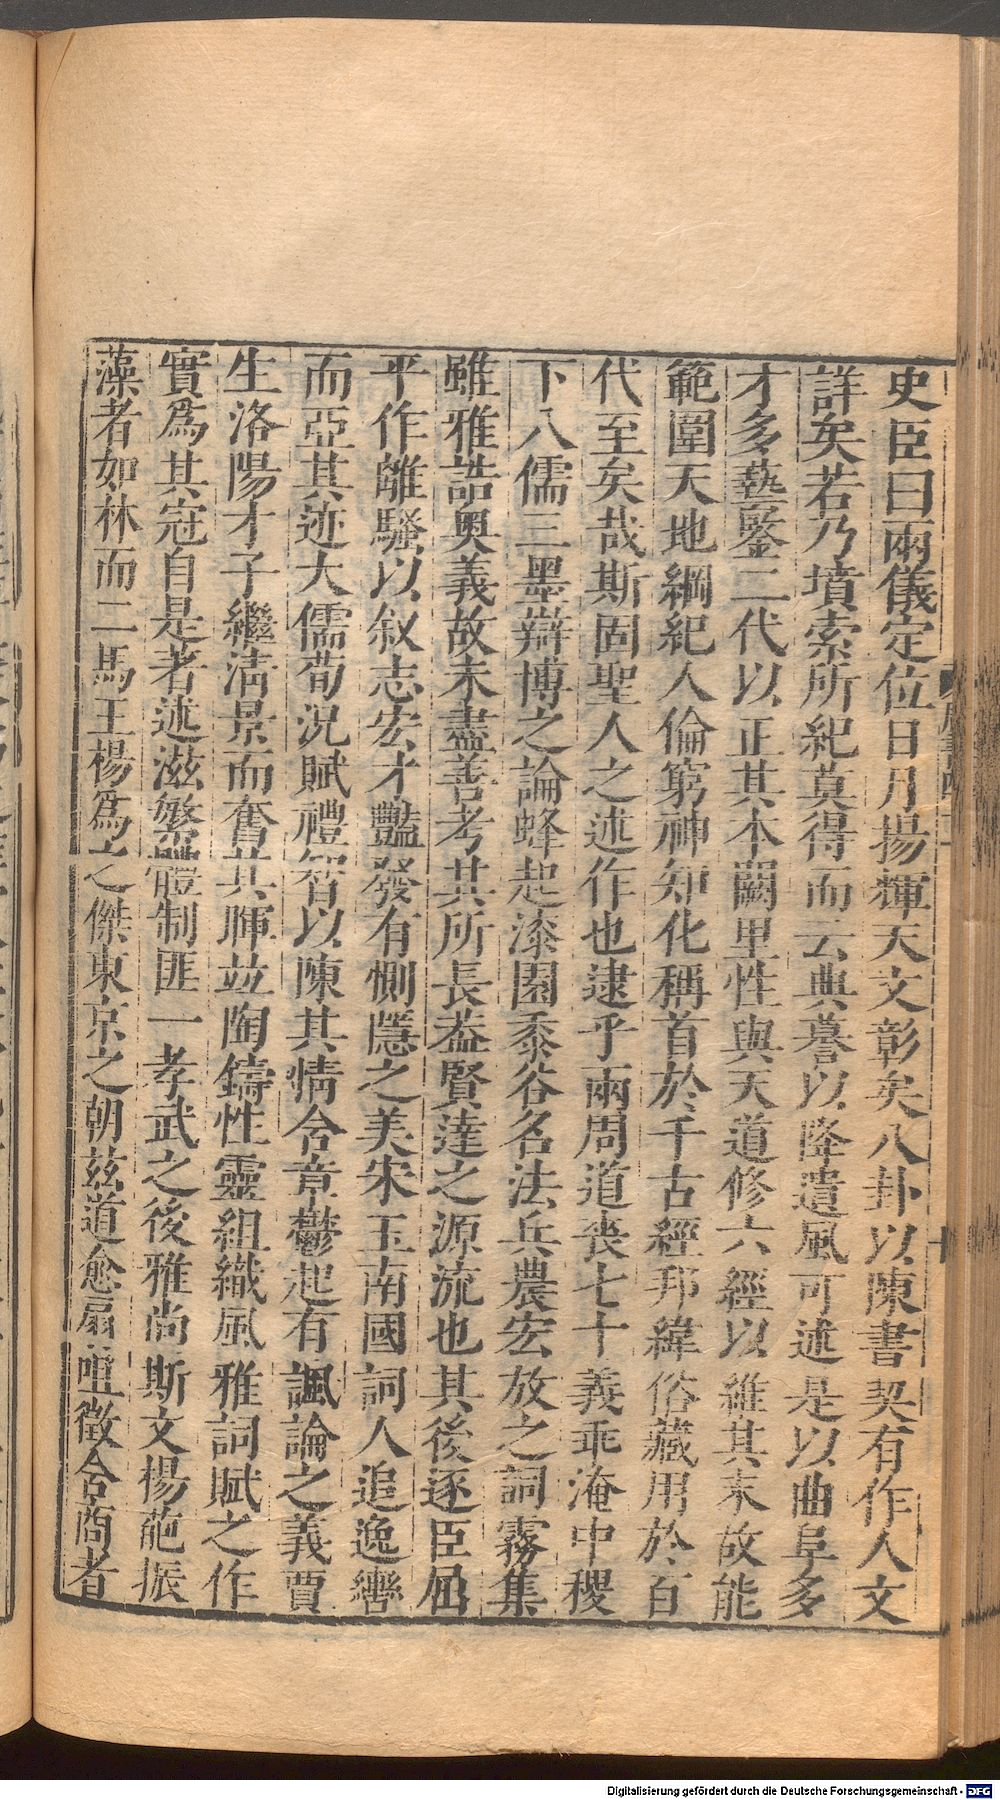 史臣曰兩儀定位日月揚輝天文彰矣八卦以陳書契有作人文
詳矣若乃墳索所紀莫得而云典謩以降遺風可述是以曲阜多
才多藝鑒二代以正其本闕里性與天道修六經以維其末故能
範圍天地綱紀人倫窮神知化稱首於千古經邦緯俗藏用於百
代至矣哉斯固聖人之述作也逮乎兩周道喪七十義乖淹中稷
下八儒三墨辯博之論蜂起漆園黍谷名法兵農宏放之詞霧集
雖雅誥奧義故未盡善考其所長葢賢達之源流也其後逐臣屈
平作離騷以叙志宏才豔發有惻隱之美宋玉南國詞人追逸轡
而亞其迹大儒荀況賦禮智以陳其情含章鬱起有諷論之義賈
生洛陽才子繼淸景而奮其暉竝陶鑄性靈組織風雅詞賦之作
實爲其冠自是著述滋繁體制匪一孝武之後雅尚斯文揚葩振
藻者如林而二馬王楊爲之傑東京之朝茲道愈扇咀徵含商者
Digitalisierung gefördert durch die Deutsche Forschungsgemeinschaft - DFG